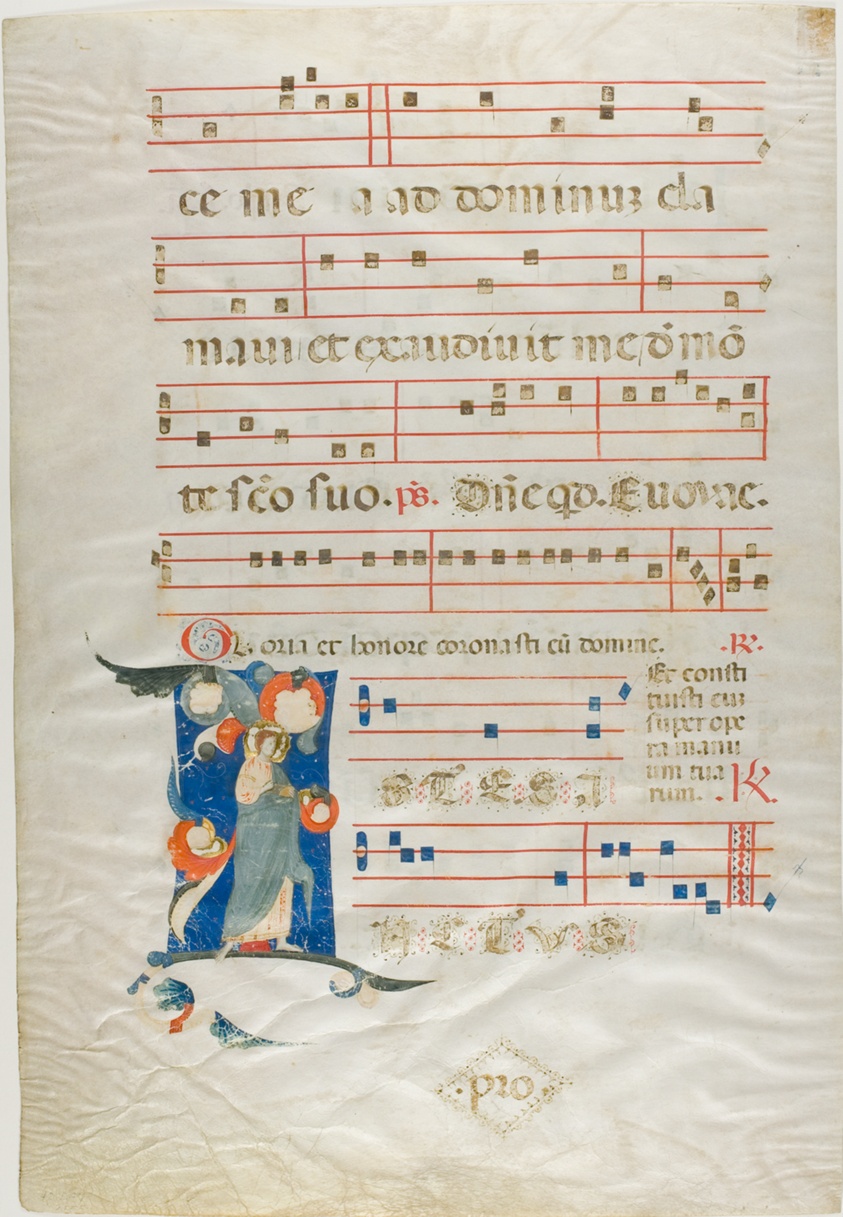 ce me a ad dominuʒ cla
maui et exaudiuit me dn̄s mō
te sc̄o suo. ps̄. Dn̄e qd. Euovae.
Gloria et honore coronasti eū domine. .R̷.
Et consti
tuisti eū
super ope
ra manu
um tua
rum. .R̷.
STESI
HCTVS
.pro.